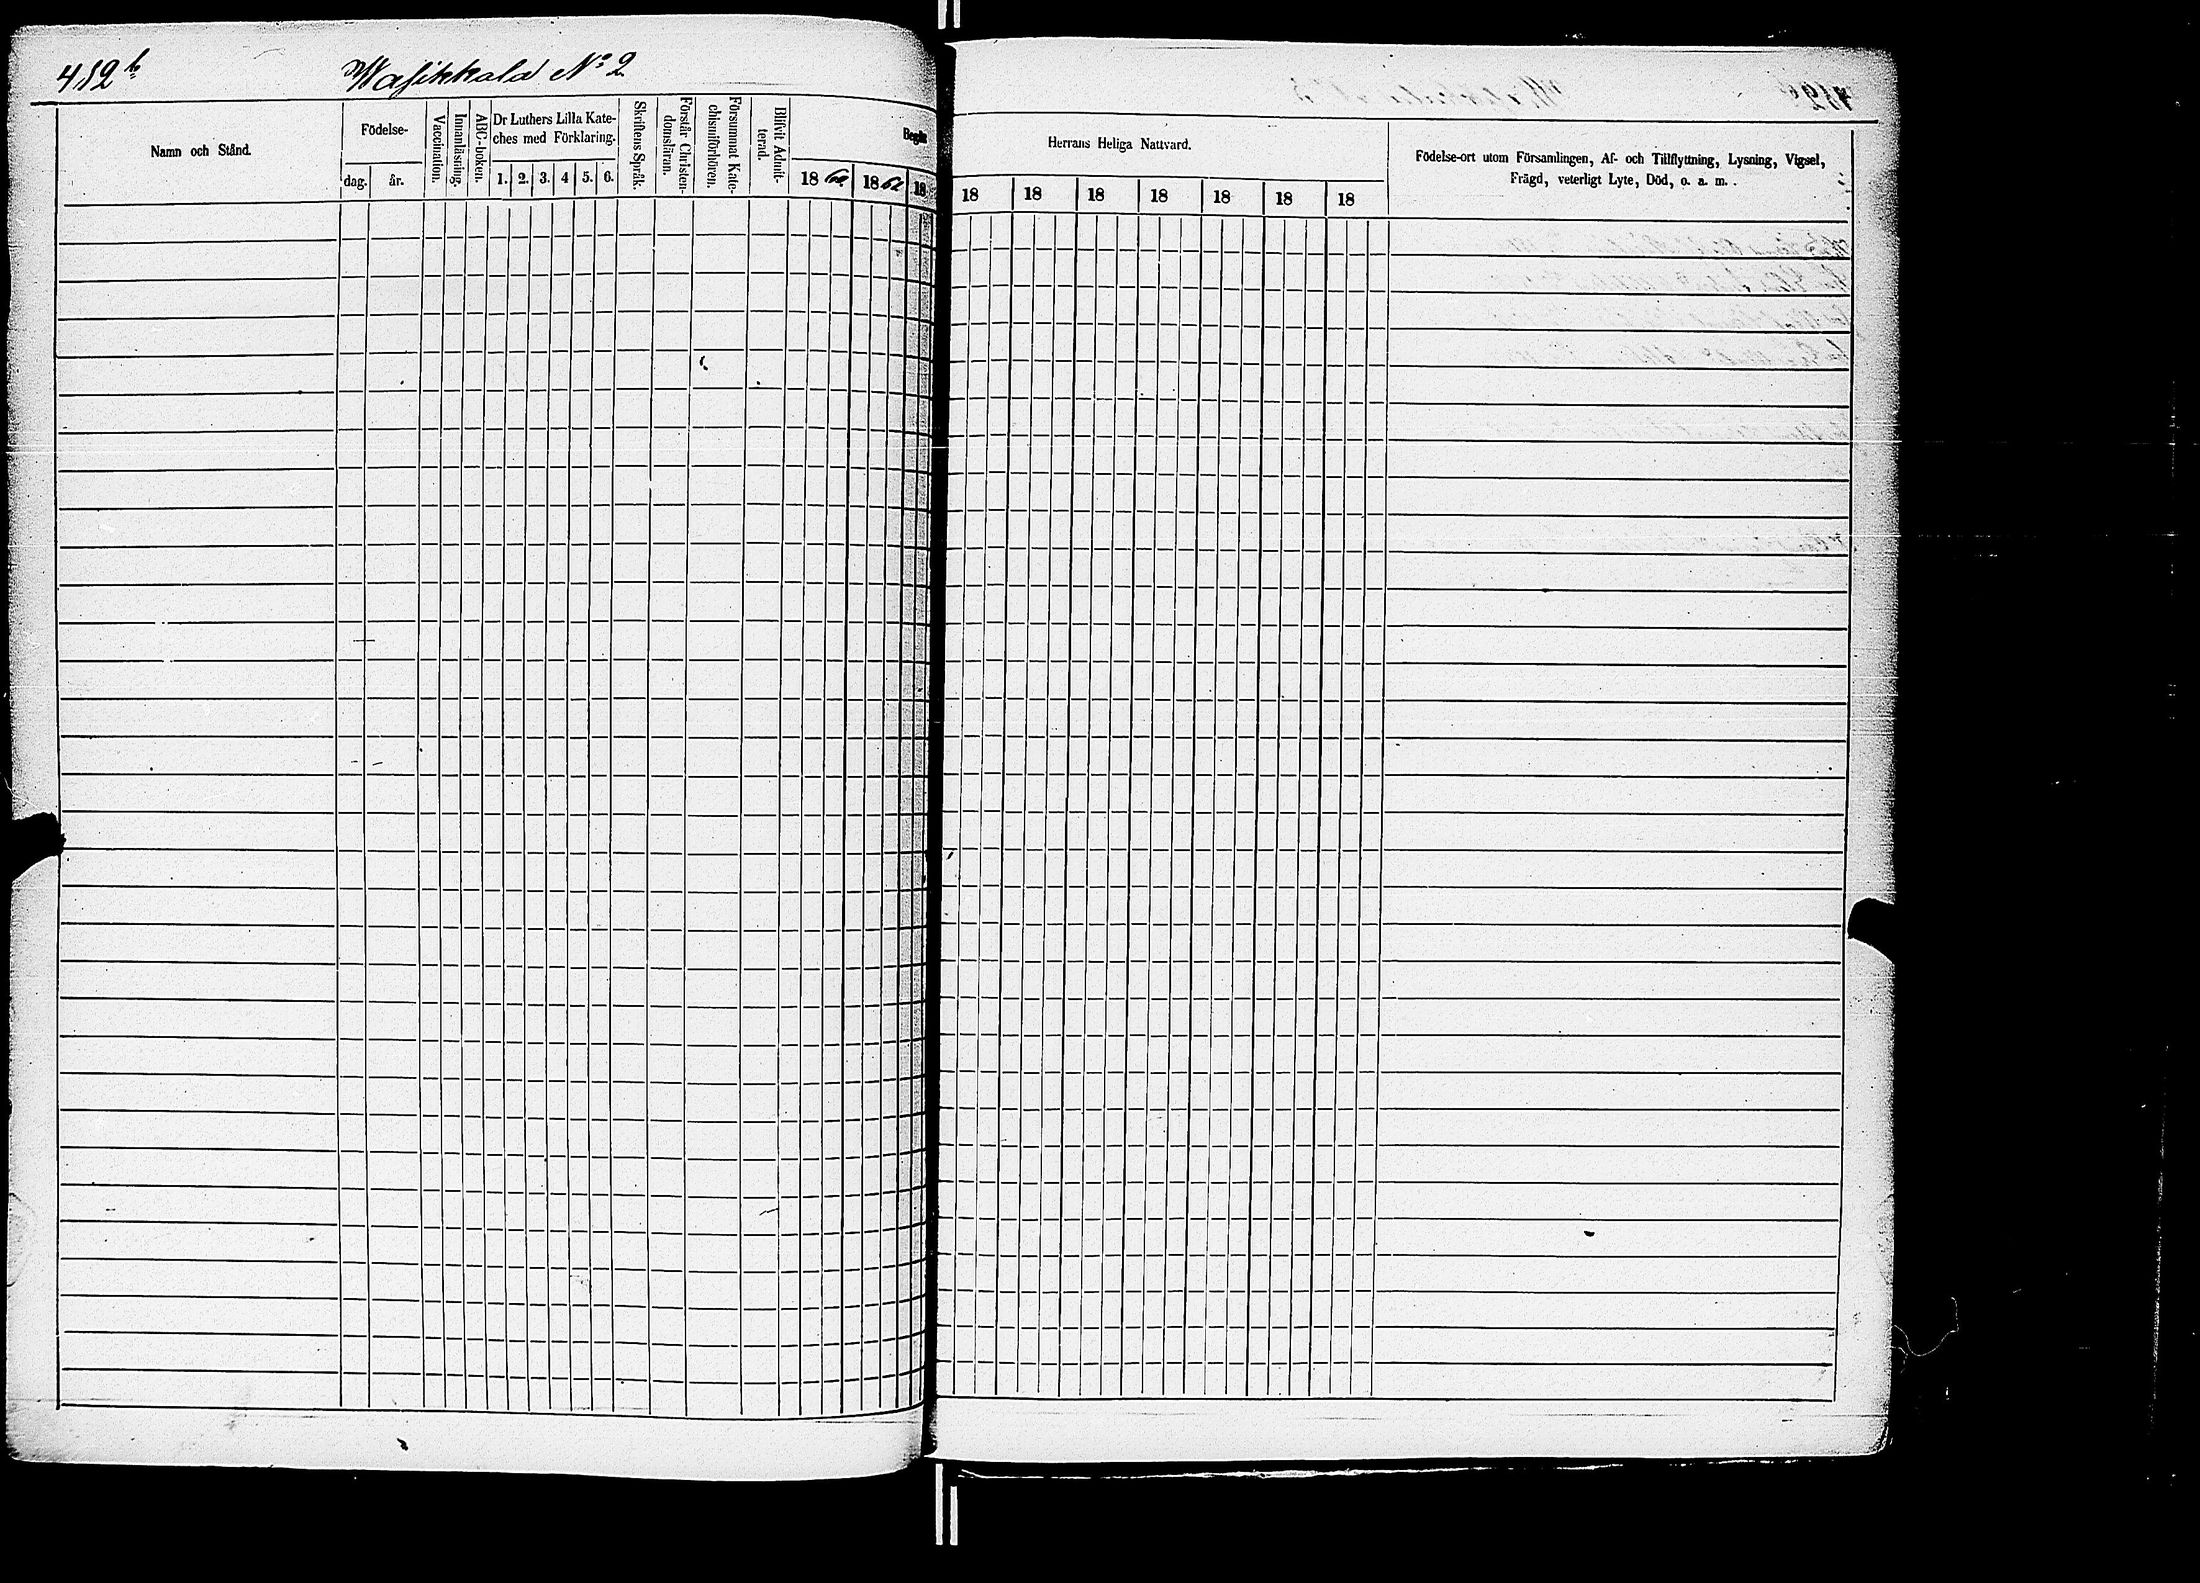 412 b Wasikkala No 2
Namn och Stånd.
Födelse-
dag. år.
Vaccination.
Innanläsning.
ABC-boken.
Dr Luthers Lilla Kate-
ches med Förklaring.
1. 2. 3. 4 5. 6.
Skriftens Språk.
Förstår Christen-
domsläran.
Försummat Kate-
chismiförhören.
Blifvit Admit-
terad.
Begått
18 18 18
Herrans Heliga Nattvard.
18 18 18 18 18 18 18
Födelse-ort utom Församlingen, Af- och Tillflyttning, Lysning, Vigsel,
Frägd, veterligt Lyte, Död, o. a. m.